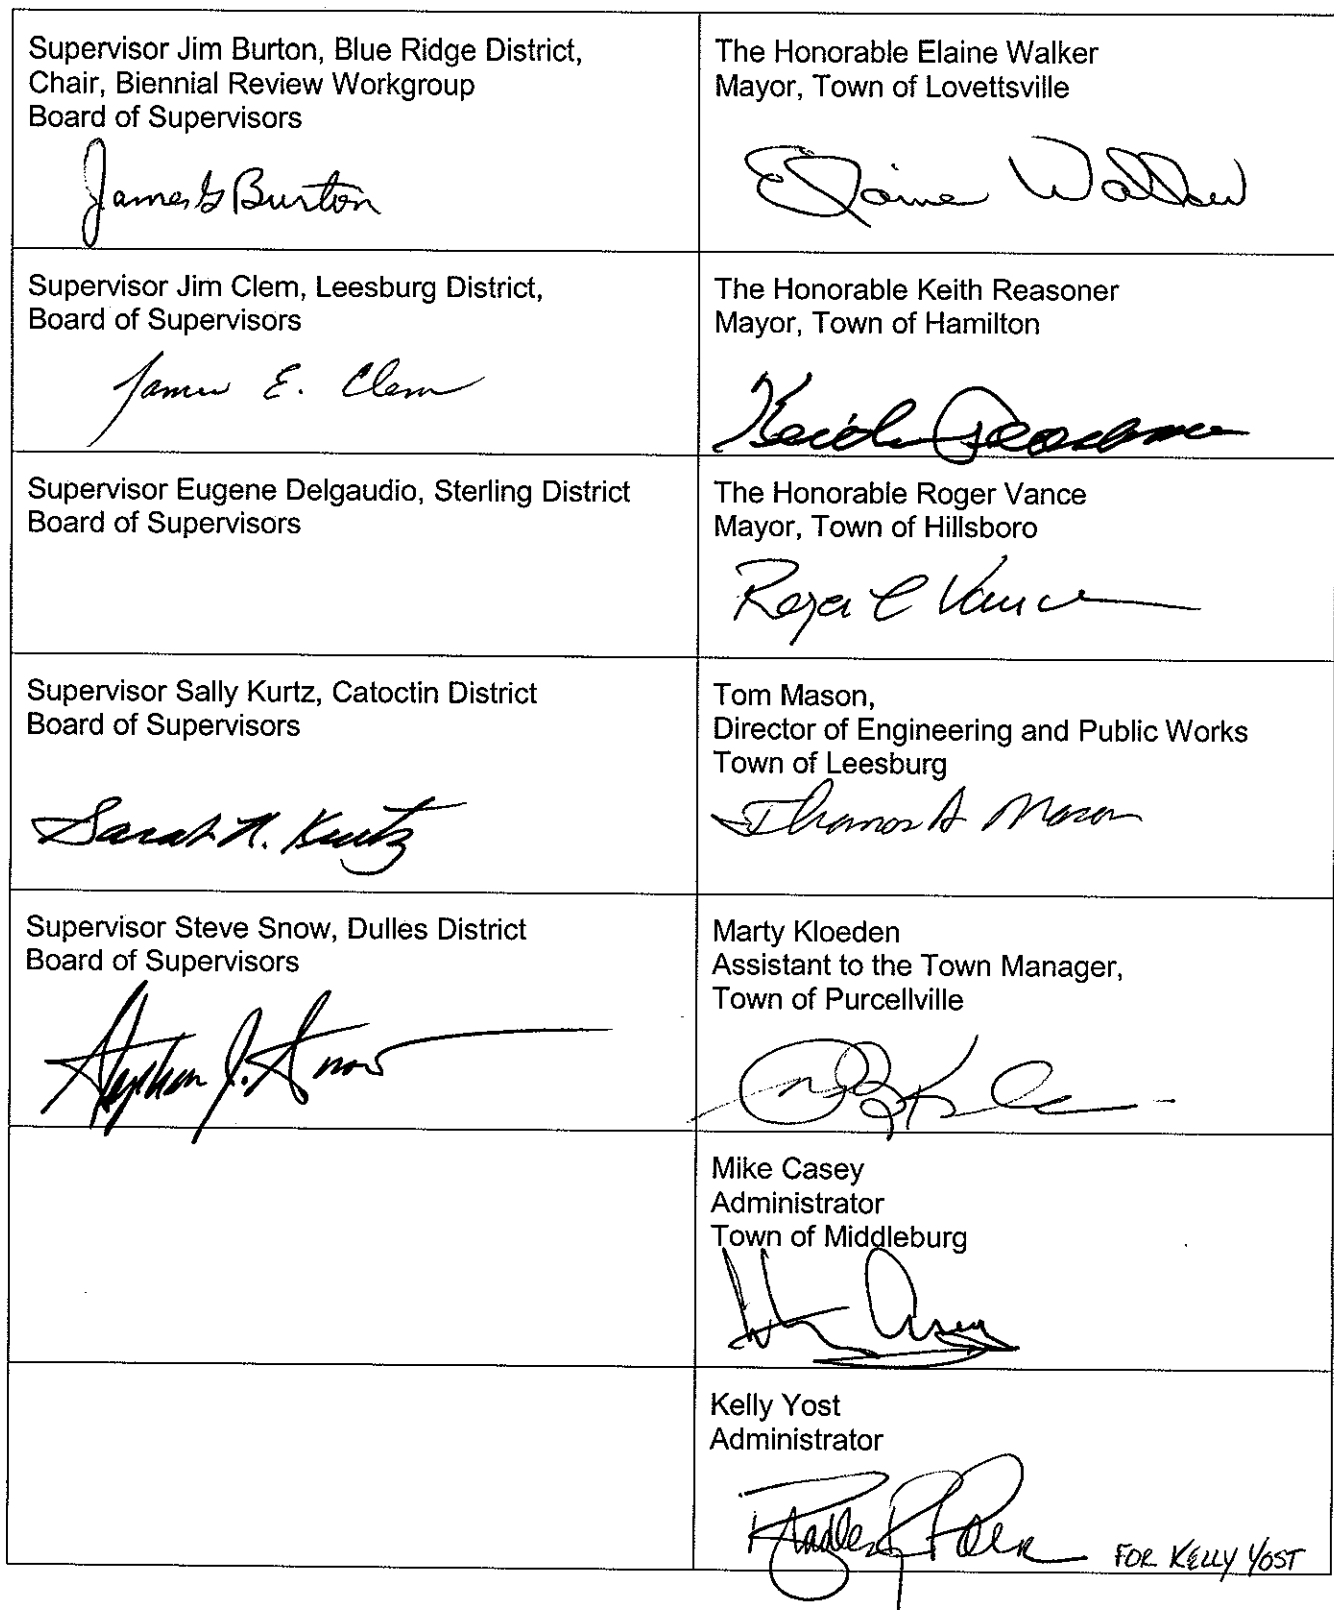 Supervisor Jim Burton, Blue Ridge District,
Chair, Biennial Review Workgroup
Board of Supervisors
James G Burton
The Honorable Elaine Walker
Mayor, Town of Lovettsville
Elaine Walker
Supervisor Jim Clem, Leesburg District,
Board of Supervisors
James E. Clem
The Honorable Keith Reasoner
Mayor, Town of Hamilton
Keith Reasoner
Supervisor Eugene Delgaudio, Sterling District
Board of Supervisors
The Honorable Roger Vance
Mayor, Town of Hillsboro
Roger C Vance
Supervisor Sally Kurtz, Catoctin District
Board of Supervisors
Sarah R. Kurtz
Tom Mason,
Director of Engineering and Public Works
Town of Leesburg
Thomas A Mason
Supervisor Steve Snow, Dulles District
Board of Supervisors
Stephen J. Snow
Marty Kloeden
Assistant to the Town Manager,
Town of Purcellville
Mike Casey
Administrator
Town of Middleburg
Kelly Yost
Administrator
FOR KELLY YOST